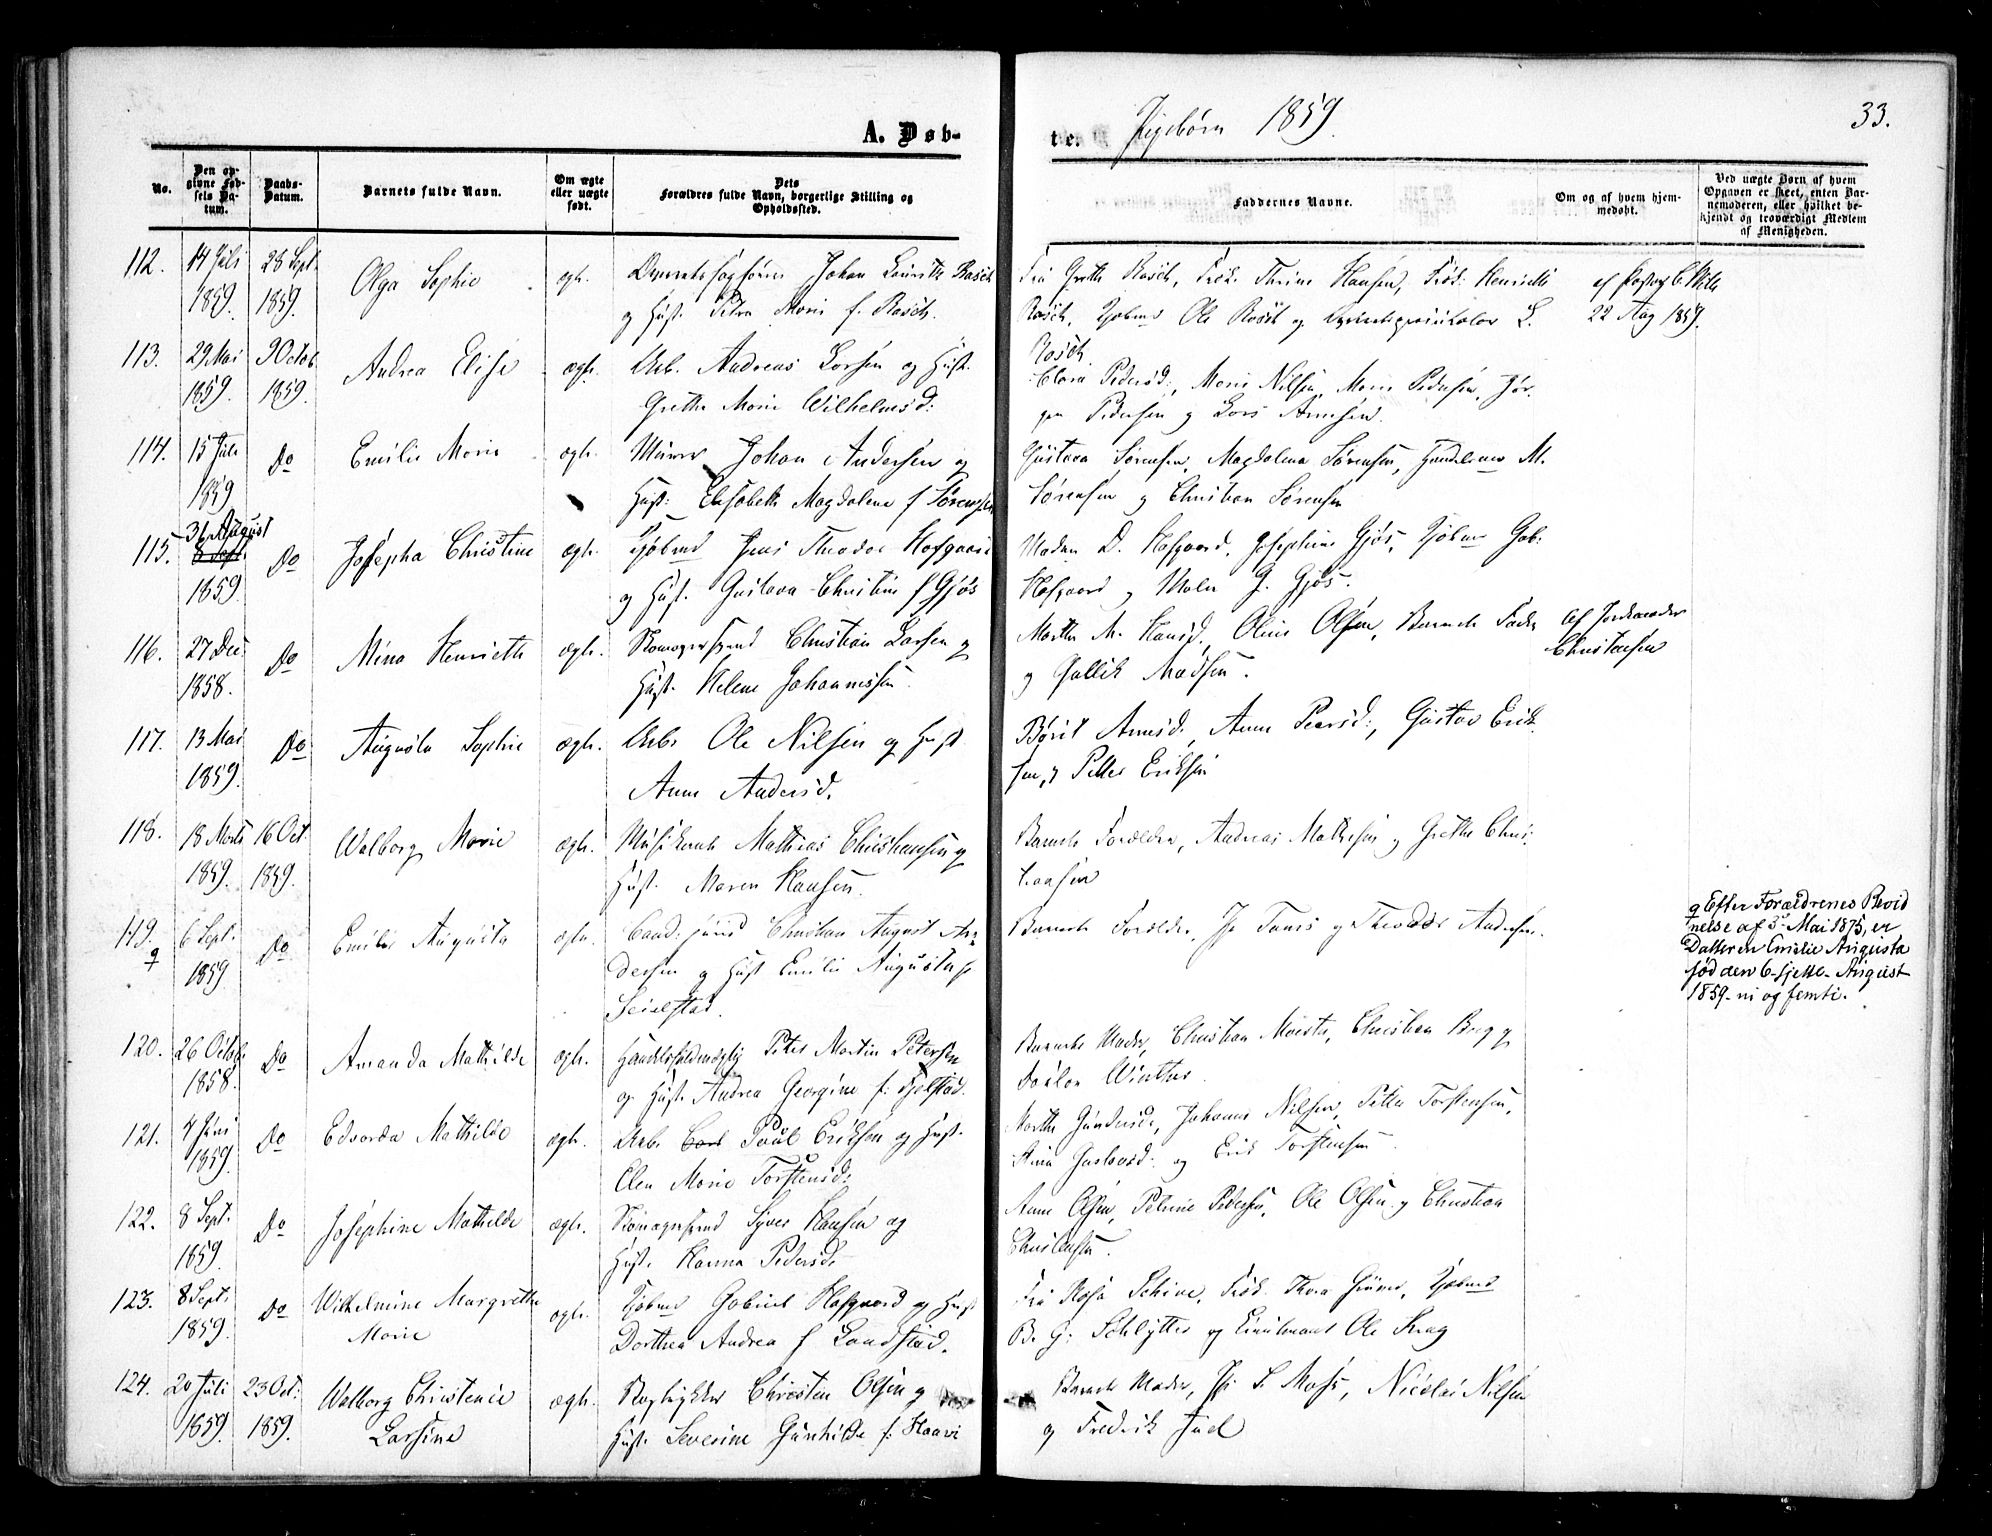 A. Døb-
te. Pigebørn 1859.
33.
No.
Den op-
givne Fød-
sels Da-
tum.
Daabs-
Datum.
Barnets fulde Navn.
Om ægte
eller uægte
født.
Dets
Forældres fulde Navn, borgerlige Stilling og
Opholdssted.
Faddernes Navne.
Om og af hvem hjem-
medøbt.
Ved uægte Børn af hvem
Opgaven er skeet, enten Bar-
nemoderen, eller hvilket be-
kjendt og troværdigt Medlem
af Menigheden.
112. 14 Juli 28 Sept.
1859. 1859.
Olga Sophie
ægte.
Johan Rasch
og Hust. Petra Marie f. Rasch.
Fru Grethe Rasch, Frøk. Thrine Hansen, Frøk: Henriette
Rasch, Kjøbmd Ole Rasch og L.
Rasch.
af
22 Aug 1859.
113. 29 Mai 9 Octob.
1859. 1859.
Andrea Elise
ægte.
Arb. Andreas Larsen og Hust.
Grethe Marie Wilhelmsd:
Clara Pedersd:, Marie Nilsen, Marie Pedersen, Jør-
gen Pedersen og Lars Arnesen.
114. 15 Juli Do
1859
Emilie Marie
ægte.
Murer Johan Andersen og
Hust: Elisabeth Magdalene f Sørensen
Gustava Sørensen, Magdalena Sørensen, M.
Sørensen og Christian Sørensen
115. 31 August
8 Sept. Do
1859.
Josepha Christine
ægte.
Kjøbmd Jens Theodor Hofgaard
og Hust. Gustava Christine f Gjøs
Madam D. Hofgaard, Josephine Gjøs, Kjøbm Gab:
Hofgaard og Maler G. Gjøs.
116. 27 Dec Do
1858.
Mina Henriette
ægte.
Christian Larsen og
Hust. Helene Johannessen.
Marthe M. Hansd., Oline Olsen, Barnets Fader
og Gullik Madsen.
Af Jordemoder
Christensen
117. 13 Mai Do
1859.
Augusta Sophie
ægte.
Arb. Ole Nilsen og Hust
Anne Andersd.
Børit Arnesd., Anne Pearsd:, Gustav Erik-
sen, og Petter Eriksen
118. 18 Marts 16 Oct.
1859. 1859.
Walborg Marie
ægte.
Musikant Mathias Christiansen og
Hust. Maren Hansen.
Barnets Forældre, Andreas Mathesen og Grethe Chris-
tiansen
119. 6 Sept. Do
1859
Emilie Augusta
ægte.
Cand: jurid Christian August An-
dersen og Hust Emilie Augusta f
Seielstad.
Barnets Forældre, og Theodor Andersen.
Efter Forældrenes Bevid
nelse af 3. Mai 1875, er
Datteren Emilie Augusta
fød den 6-sjette- August
1859- ni og femti.
120. 26 Octob. Do
1858.
Amanda Mathilde
ægte.
Handelsfuldmægtig Peter Martin Petersen
og Hust. Andrea Georgine f. Fjelstad.
Barnets Moder, Christian Christian Brug og
Winther.
121. 4 Juni Do
1859.
Edvarda Mathilde
ægte.
Arb. Carl Paul Eriksen og Hust.
Elen Marie Torstensd:
Marthe Gundersd., Johanne Nilsen, Petter Torstensen,
Gustavsd. og Erik Torstensen
122. 8 Sept. Do
1859.
Josephine Mathilde
ægte.
Syver Hansen og
Hust. Hanna Pedersd.
Anne Olsen, Petrine Pedersen, Ole Olsen og Christian
Christensen.
123. 8 Sept. Do
1859.
Wilhelmine Margrethe
Marie
ægte.
Kjøbmd Gabriel Hofgaard og Hust
Dorthea Andrea f Landstad.
Fru Rosa Schive, Frøk. Thora Kjøbmd
B. G. Schlytter og Lieutenant Ole Krag
124. 20 Juli 23 Oct.
1859. 1859.
Walborg Christence
Larsine
ægte.
Bogtrykker Christen Olsen og
Hust. Severine Gunhilde f. Haavi
Barnets Moder, S. Moss, Nicolai Nilsen
og Fredrik Juel